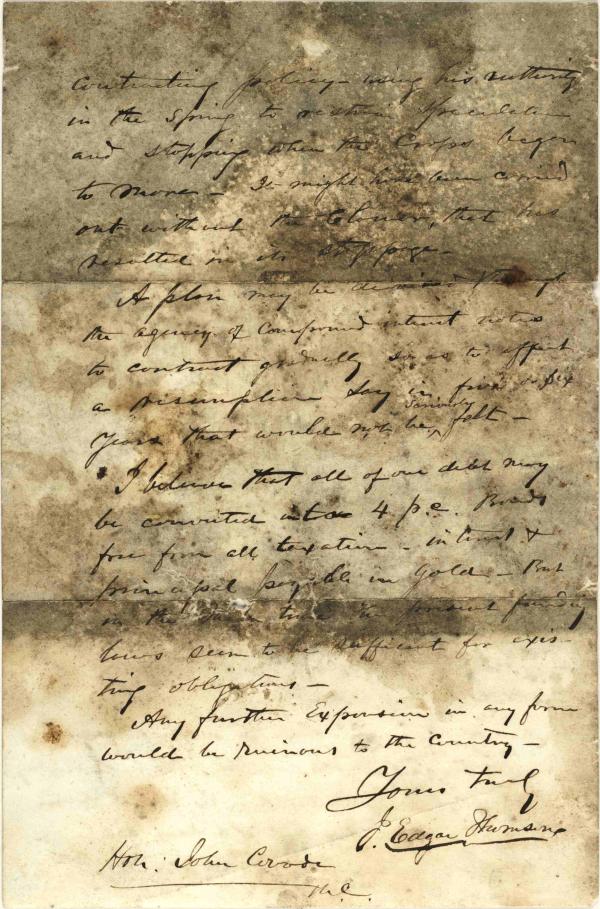 contracting policy - using his authority
in the Spring to restrain Speculation
and stopping when the Crops began
to move - It might have been carried
out without the Clamor, that has
resulted in its stoppage -
A plan may be devised through
the agency of Compound interest notes
to contract gradually so as to effect
a resumption say in five or six
seriously
Years that would not be, felt -
I believe that all of our debt may
be converted into 4 p.c. Bonds
free from all taxation - interest &
principal payable in Gold - But
in the mean time the present funding
laws seem to be sufficient for exis-
ting obligations -
Any further Expansion in any form
would be ruinous to the Country -
Yours truly
J. Edgar Thomson
Hon: John Covode
M.C.